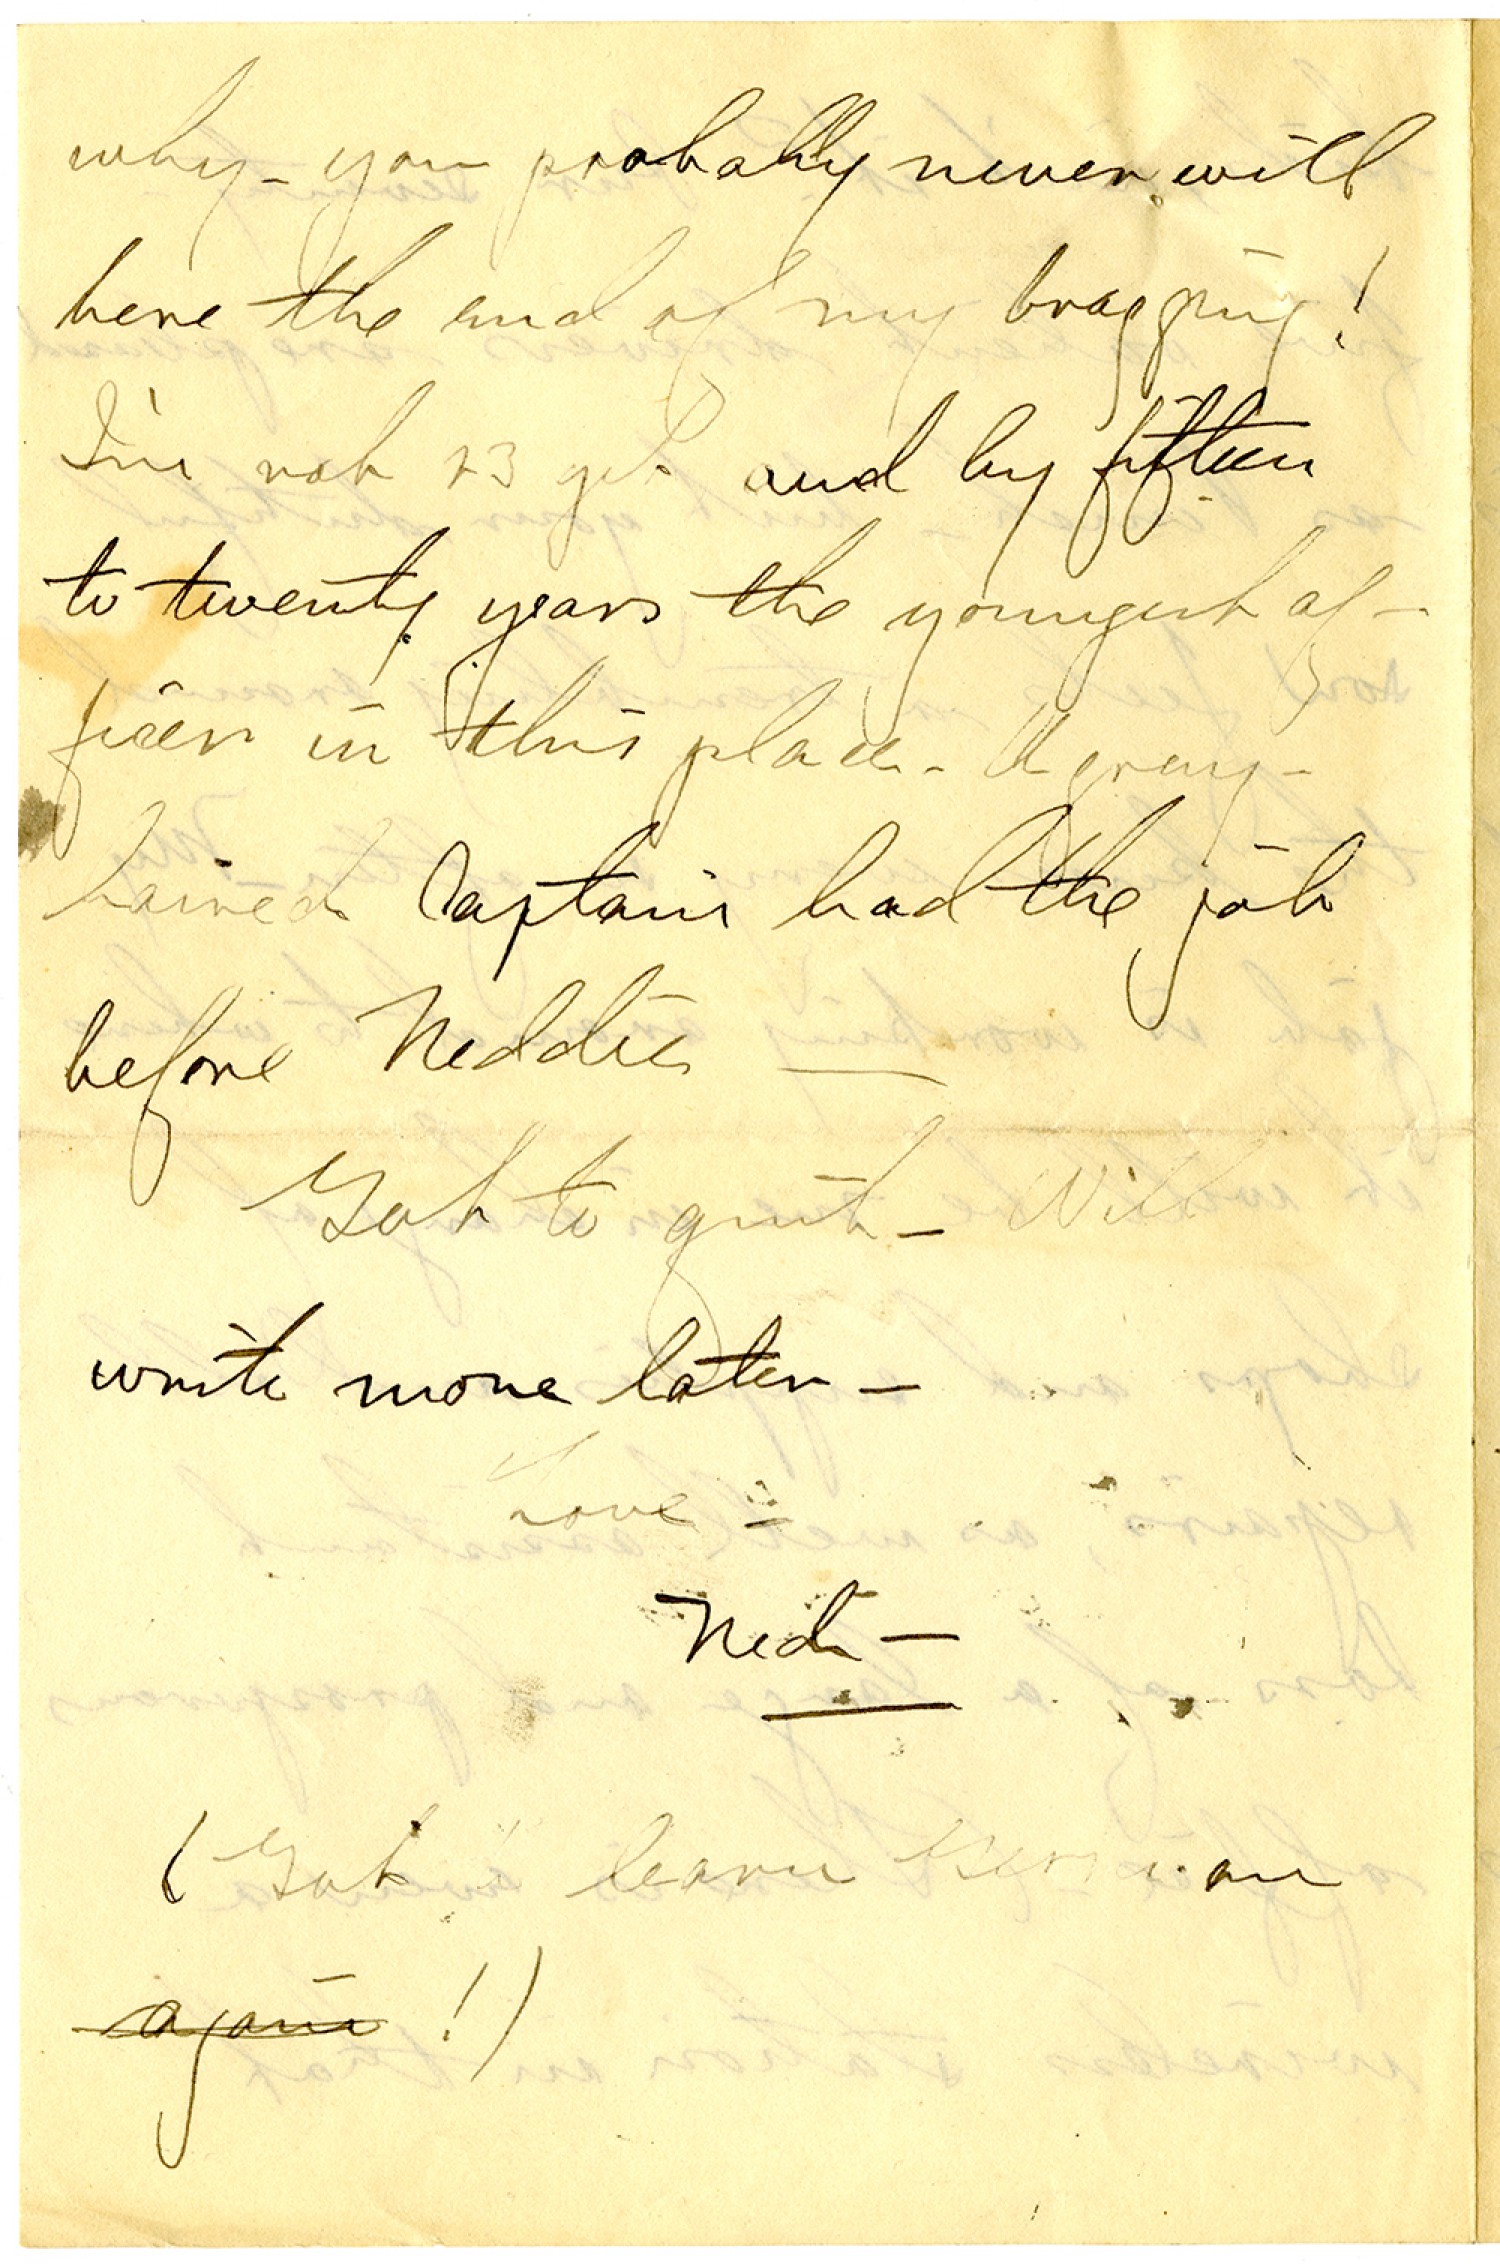 why – you probably never will
here the end of my bragging!
I'm not 23 yet and by fifteen
to twenty years the youngest of-
ficer in this place – A gray-
haired Captain had the job
before Neddie —
Got to quit – Will
write more later –
Love –
Ned –
(Got to learn German
again!)